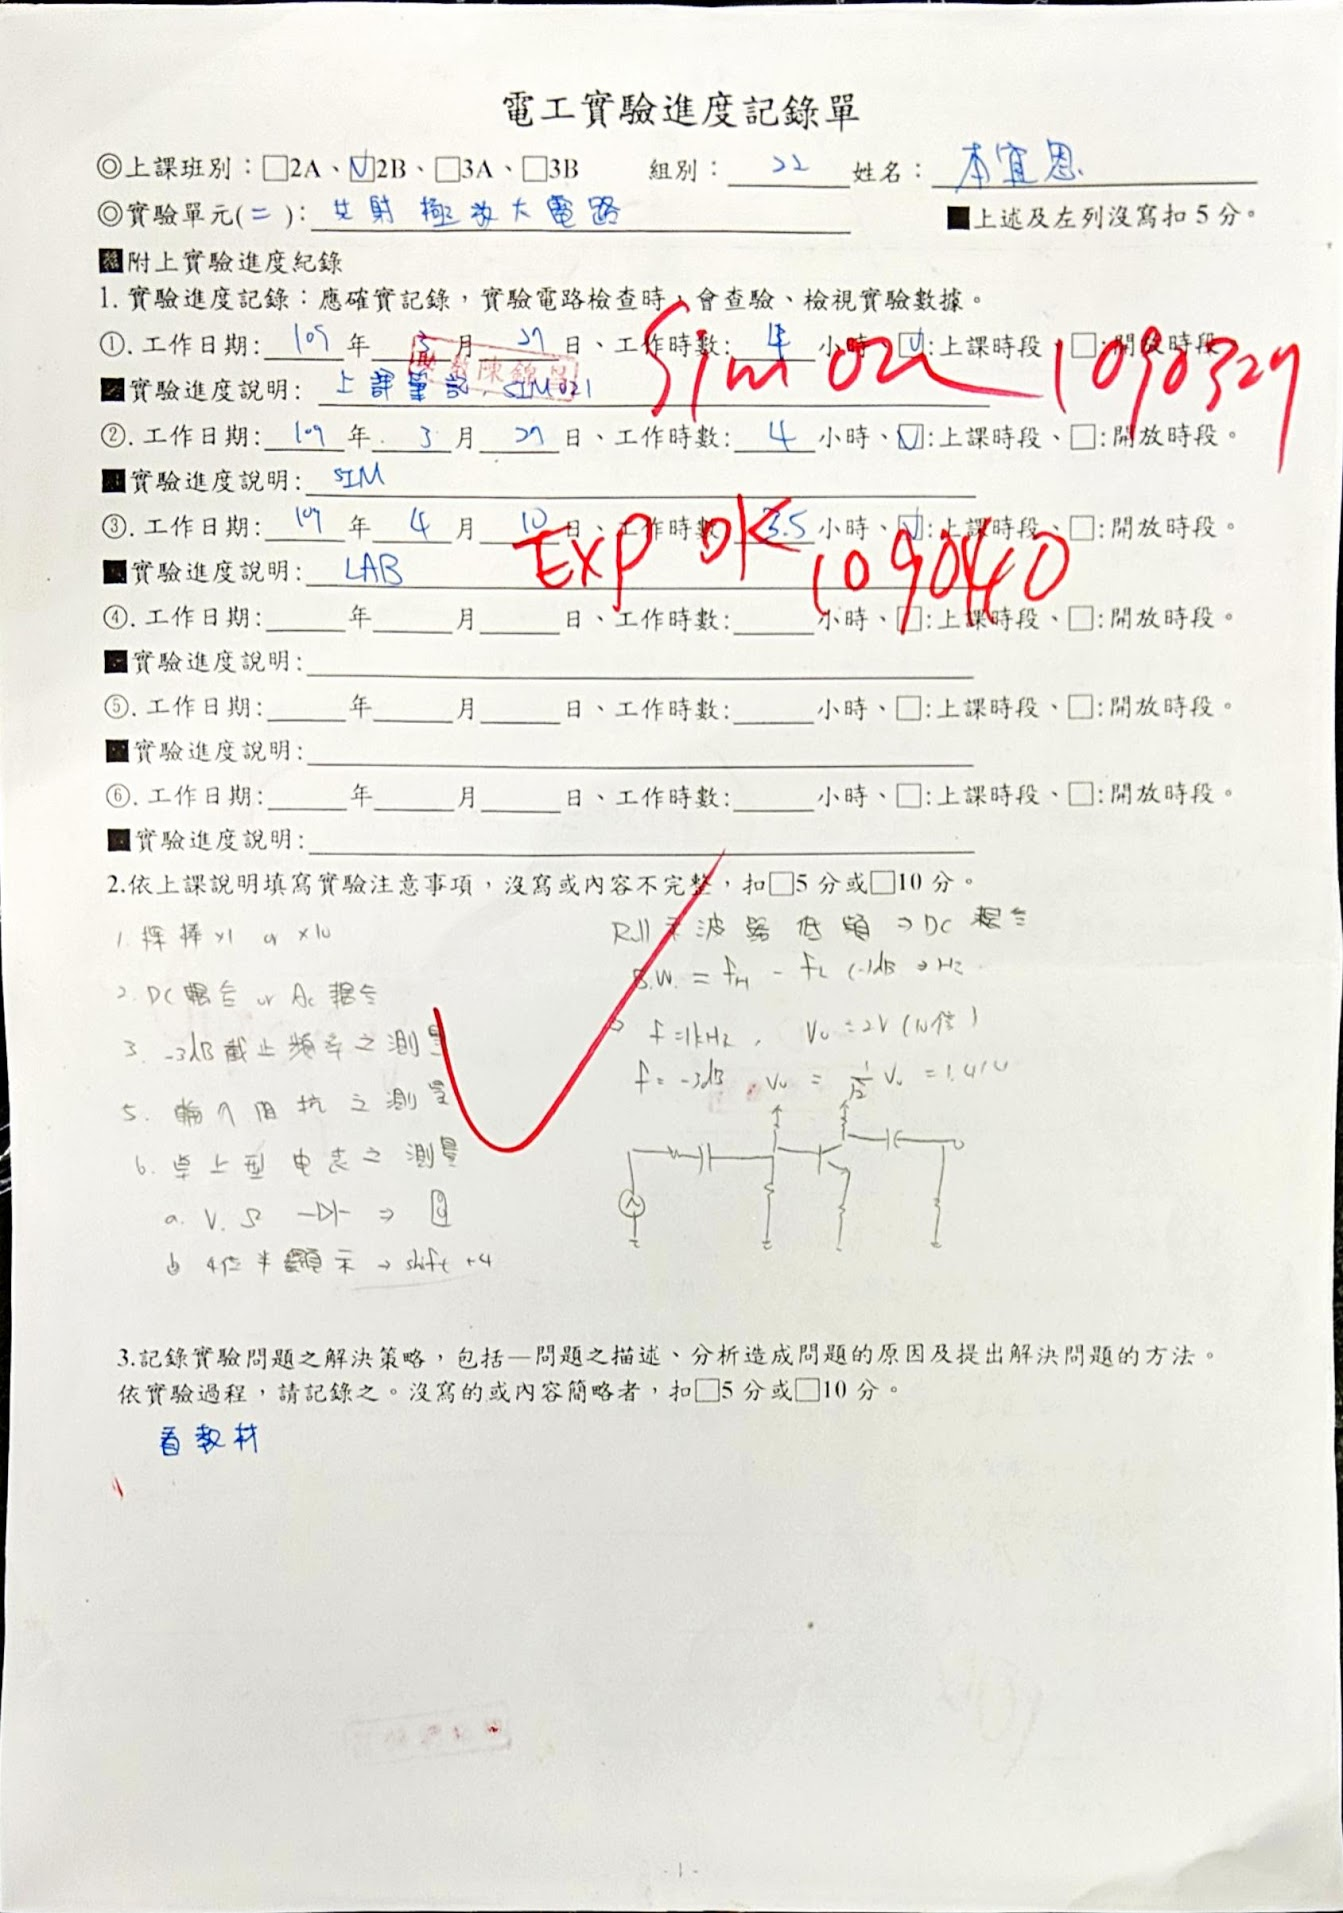 電工實驗進度記錄單
◎上課班別：□2A、☑2B、□3A、□3B 組別：22 姓名：本宜恩
◎實驗單元(二)：共射極放大電路 ■上述及左列沒寫扣5分。
■附上實驗進度紀錄
1.實驗進度記錄：應確實記錄，實驗電路檢查時，會查驗、檢視實驗數據。
①.工作日期:109年3月27日、工作時數:4小時、☑:上課時段、□:開放時段
Sim OK 1090327
■實驗進度說明：上課筆記、SIM
②.工作日期:109年3月27日、工作時數:4小時、☑:上課時段、□:開放時段。
■實驗進度說明:SIM
③.工作日期:109年4月10日、工作時數:3.5小時、☑:上課時段、□:開放時段。
■實驗進度說明:LAB
EXP OK 1090410
④.工作日期:____年____月____日、工作時數:____小時、□:上課時段、□:開放時段。
■實驗進度說明:
⑤.工作日期:____年____月____日、工作時數:____小時、□:上課時段、□:開放時段。
■實驗進度說明:
⑥.工作日期:____年____月____日、工作時數:____小時、□:上課時段、□:開放時段。
■實驗進度說明:
2.依上課說明填寫實驗注意事項，沒寫或內容不完整，扣□5分或□10分。
1. 探棒 x1 or x10
2. DC耦合 or AC耦合
3. -3dB截止頻率之測量
5. 輸入阻抗之測量
6. 桌上型电表之測量
a. V. Ω ⇒
b 4位半顯示 → shift +4
Roll 示波器低頻 ⇒ DC耦合
B.W. = fH - fL (-3dB → Hz
f=1kHz, Vo=2V (10倍)
f= -3dB Vo = 1/√2 Vo = 1.414
3.記錄實驗問題之解決策略，包括—問題之描述、分析造成問題的原因及提出解決問題的方法。
依實驗過程，請記錄之。沒寫的或內容簡略者，扣□5分或□10分。
看教材
- 1 -